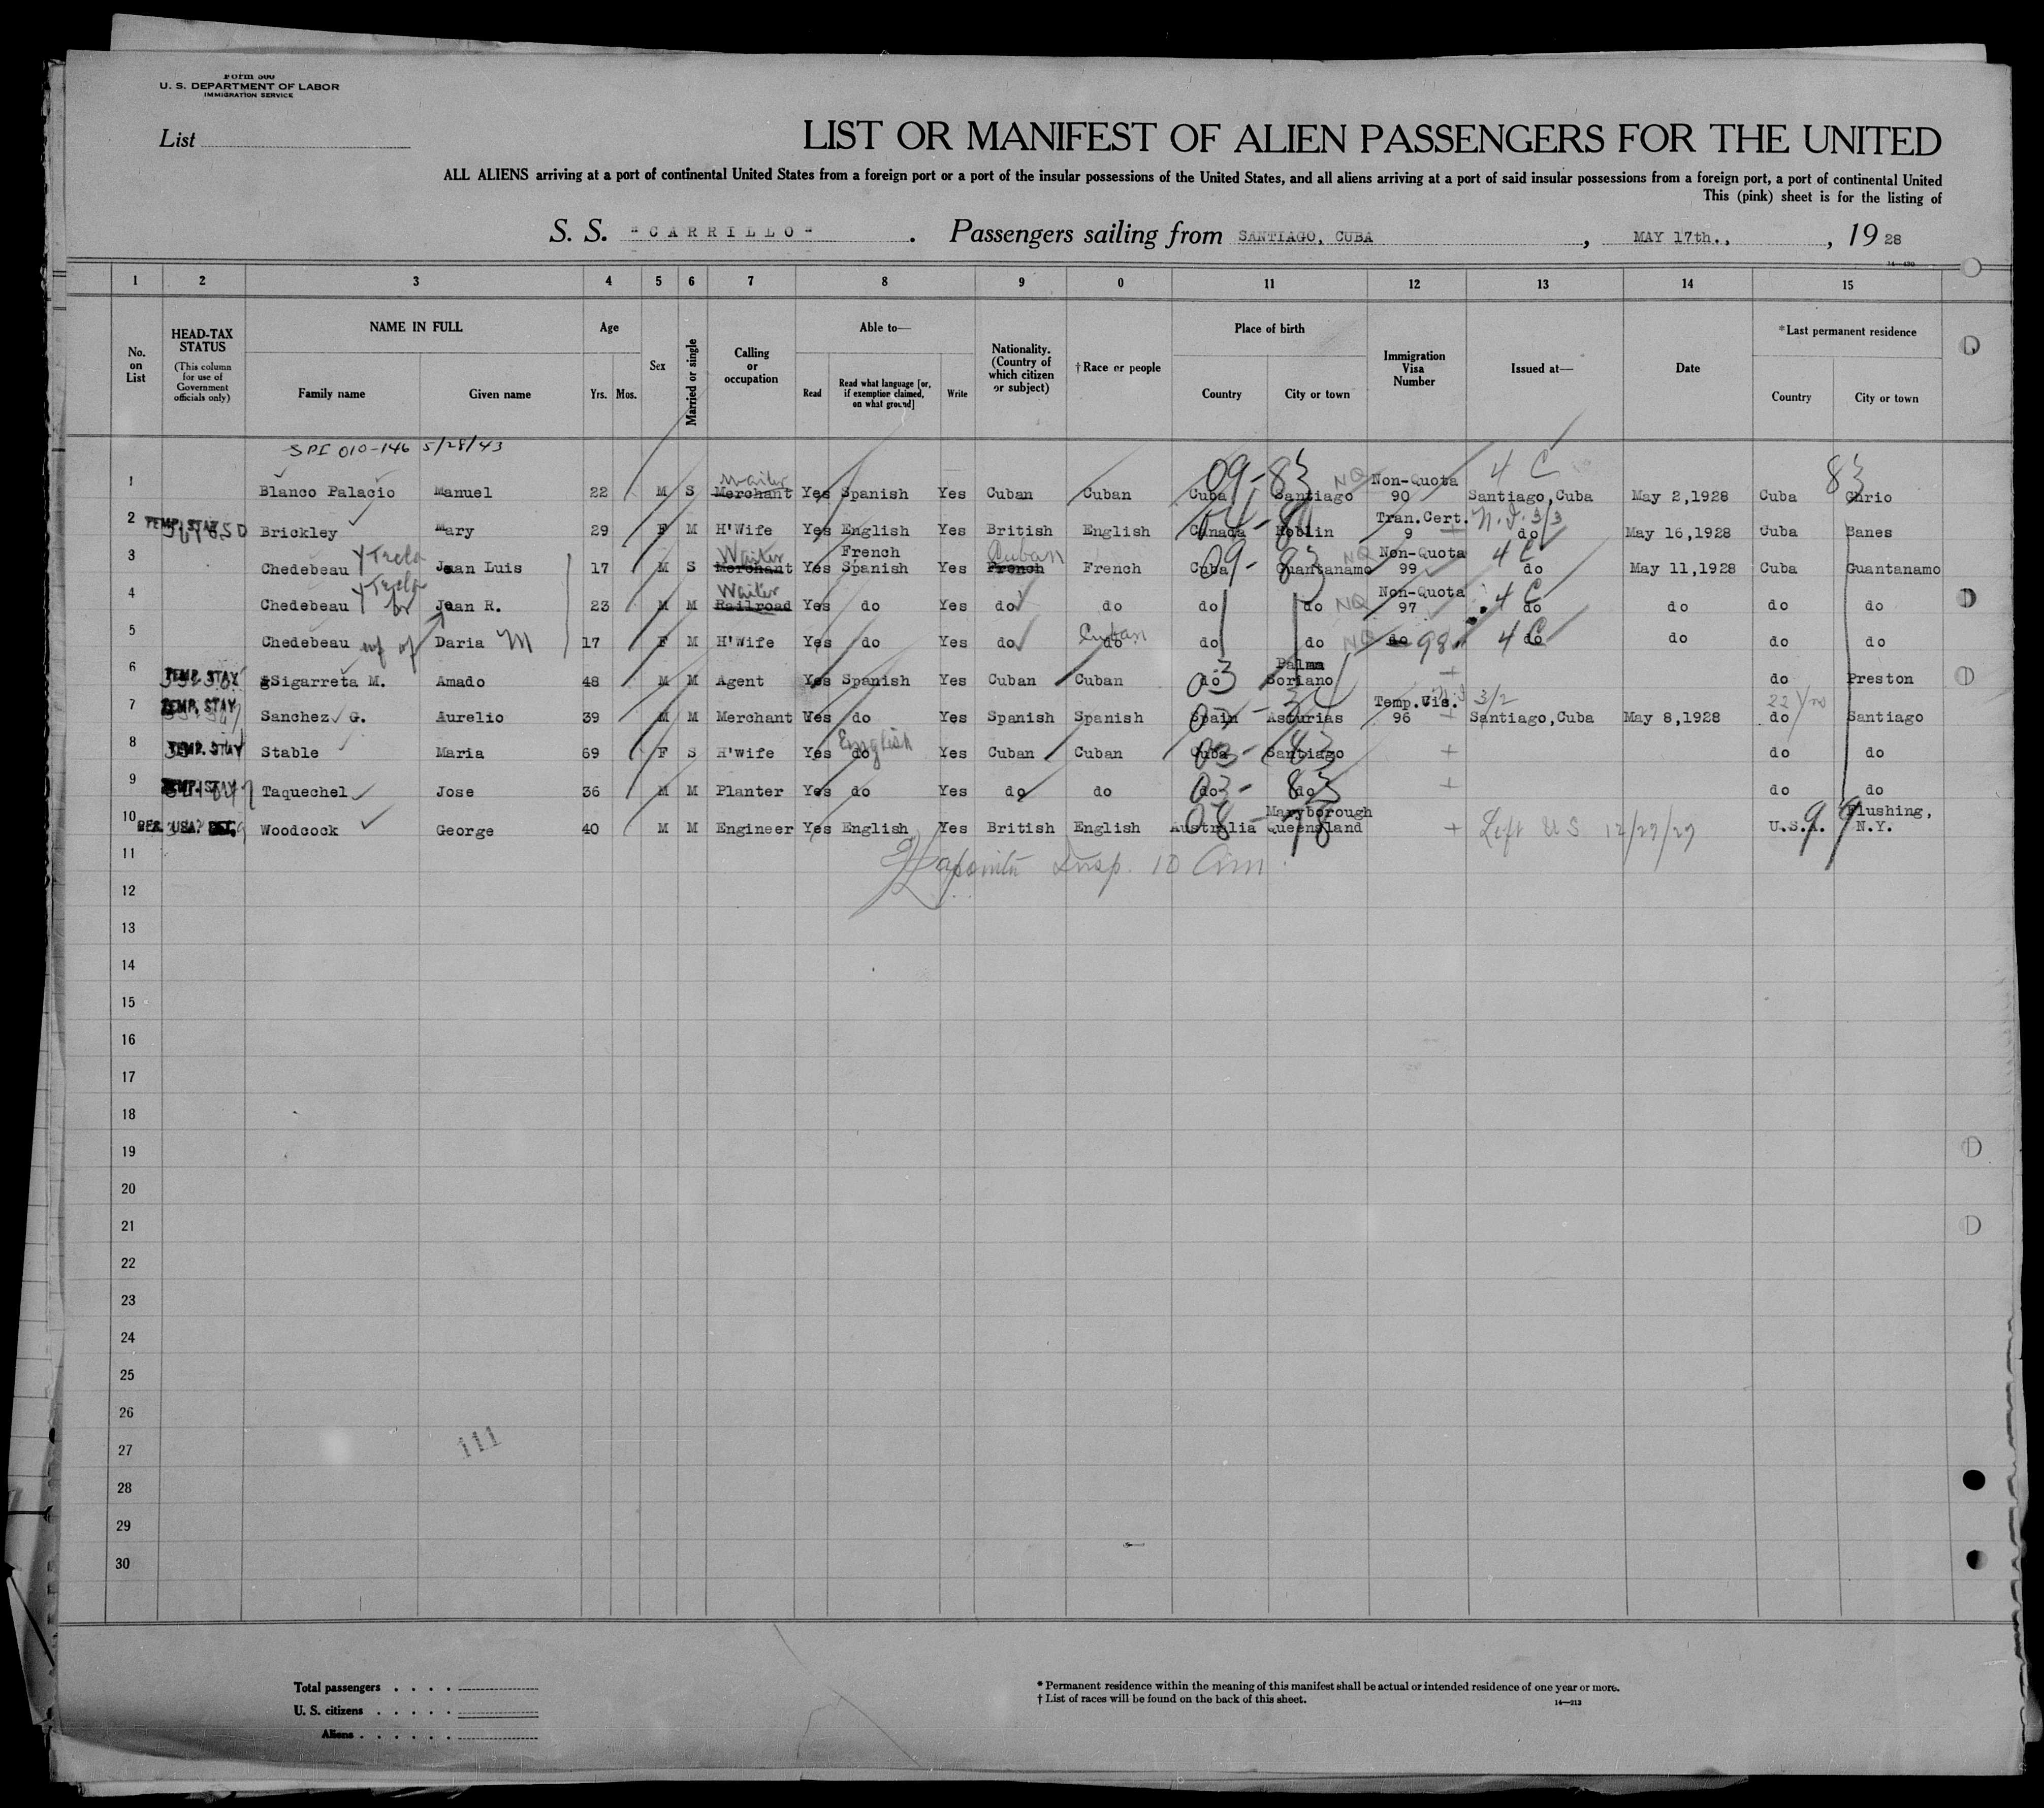 Form 500
U. S. DEPARTMENT OF LABOR
IMMIGRATION SERVICE
List
LIST OR MANIFEST OF ALIEN PASSENGERS FOR THE UNITED
ALL ALIENS arriving at a port of continental United States from a foreign port or a port of the insular possessions of the United States, and all aliens arriving at a port of said insular possessions from a foreign port, a port of continental United
This (pink) sheet is for the listing of
S. S. "CARRILLO" . Passengers sailing from SANTIAGO, CUBA , MAY 17th., , 19 28
1 2 3 4 5 6 7 8 9 0 11 12 13 14 15
No. on List
HEAD-TAX STATUS (This column for use of Government officials only)
NAME IN FULL
Family name Given name
Age
Yrs. Mos.
Sex
Married or single
Calling or occupation
Able to—
Read Read what language [or, if exemption claimed, on what ground] Write
Nationality. (Country of which citizen or subject)
† Race or people
Place of birth
Country City or town
Immigration Visa Number
Issued at—
Date
*Last permanent residence
Country City or town
SPI 010-146 5/28/43
1 Blanco Palacio Manuel 22 M S Merchant Waiter Yes Spanish Yes Cuban Cuban Cuba Santiago 09-83 NQ Non-Quota 90 4 C Santiago, Cuba May 2,1928 Cuba 83
2 TEMP. STAY Brickley Mary 29 F M H'Wife Yes English Yes British English Canada Roblin Tran.Cert. 9 3/3 do May 16,1928 Cuba Banes
3 Chedebeau y Trecla Jean Luis 17 M S Merchant Waiter Yes French Spanish Yes French Cuban French Cuba Guantanamo 09-83 NQ Non-Quota 99 4 C do May 11,1928 Cuba Guantanamo
4 Chedebeau y Trecla br Jean R. 23 M M Railroad Waiter Yes do Yes do do do do NQ Non-Quota 97 4 C do do do do
5 Chedebeau wf of Daria M 17 F M H'Wife Yes do Yes do do Cuban do do NQ do 98 4 C do do do do
6 TEMP. STAY Sigarreta M. Amado 48 M M Agent Yes Spanish Yes Cuban Cuban do Palma Soriano 03 + do Preston
7 TEMP. STAY Sanchez G. Aurelio 39 M M Merchant Yes do Yes Spanish Spanish Spain Asturias Temp.Vis. 96 3/2 Santiago,Cuba May 8,1928 22 Yrs do Santiago
8 TEMP. STAY Stable Maria 69 F S H'wife Yes do English Yes Cuban Cuban Cuba Santiago 03-83 + do do
9 TEMP. STAY Taquechel Jose 36 M M Planter Yes do Yes do do do do 03-83 + do do
10 Woodcock George 40 M M Engineer Yes English Yes British English Australia Maryborough Queensland 08-78 + Left US 12/27/27 U.S.A. Flushing, N.Y. 99
11 Insp. 10 Am
12
13
14
15
16
17
18
19
20
21
22
23
24
25
26
27
28
29
30
111
Total passengers . . . .
U. S. citizens . . . . .
Aliens . . . . . .
* Permanent residence within the meaning of this manifest shall be actual or intended residence of one year or more.
† List of races will be found on the back of this sheet.
14—213